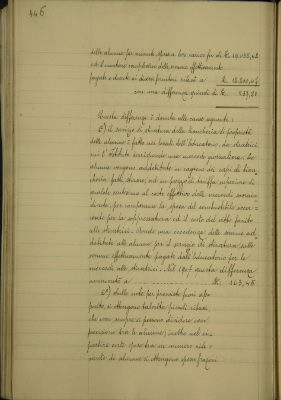 446
delle alunne per ricevute spese a loro carico fu di £. 19.038,48
ed il numerario complessivo delle somme effettivamente
pagate e dovute ai diversi fornitori rilevò a £. 18.200,67
con una differenza quindi di £.
Questa differenza è dovuta alle cause seguenti:
1°) il servizio di stiratura della biancheria di proprietà
delle alunne è fatto nei locali dell'Educatorio da stiratrici
cui l'Istituto corrisponde una mercede giornaliera. Le
alunne vengono addebitate in ragione dei capi di bian-
cheria fatti stirare, ad un prezzo di tariffa superiore di
qualche centesimo al costo effettivo della mercede corrispo-
sta, per compensare la spesa del combustibile occor-
rente per la soppressatura ed il costo del vitto fornito
alle stiratrici. Quindi una eccedenza delle somme ad-
debitate alle alunne per il servizio di stiratura sulle
somme effettivamente pagate dall'Educatorio per la
mercede alle stiratrici. Nel 1907 questa differenza
ammontò a £. 163,45
2°) Sulle note per provviste fuori ap-
palto, si ottengono talvolta piccoli ribassi,
che non sempre si possono dividere con
precisione tra le alunne; inoltre nel ri-
partire certe spese tra un numero rile-
vante di alunne si ottengono spesso frazioni